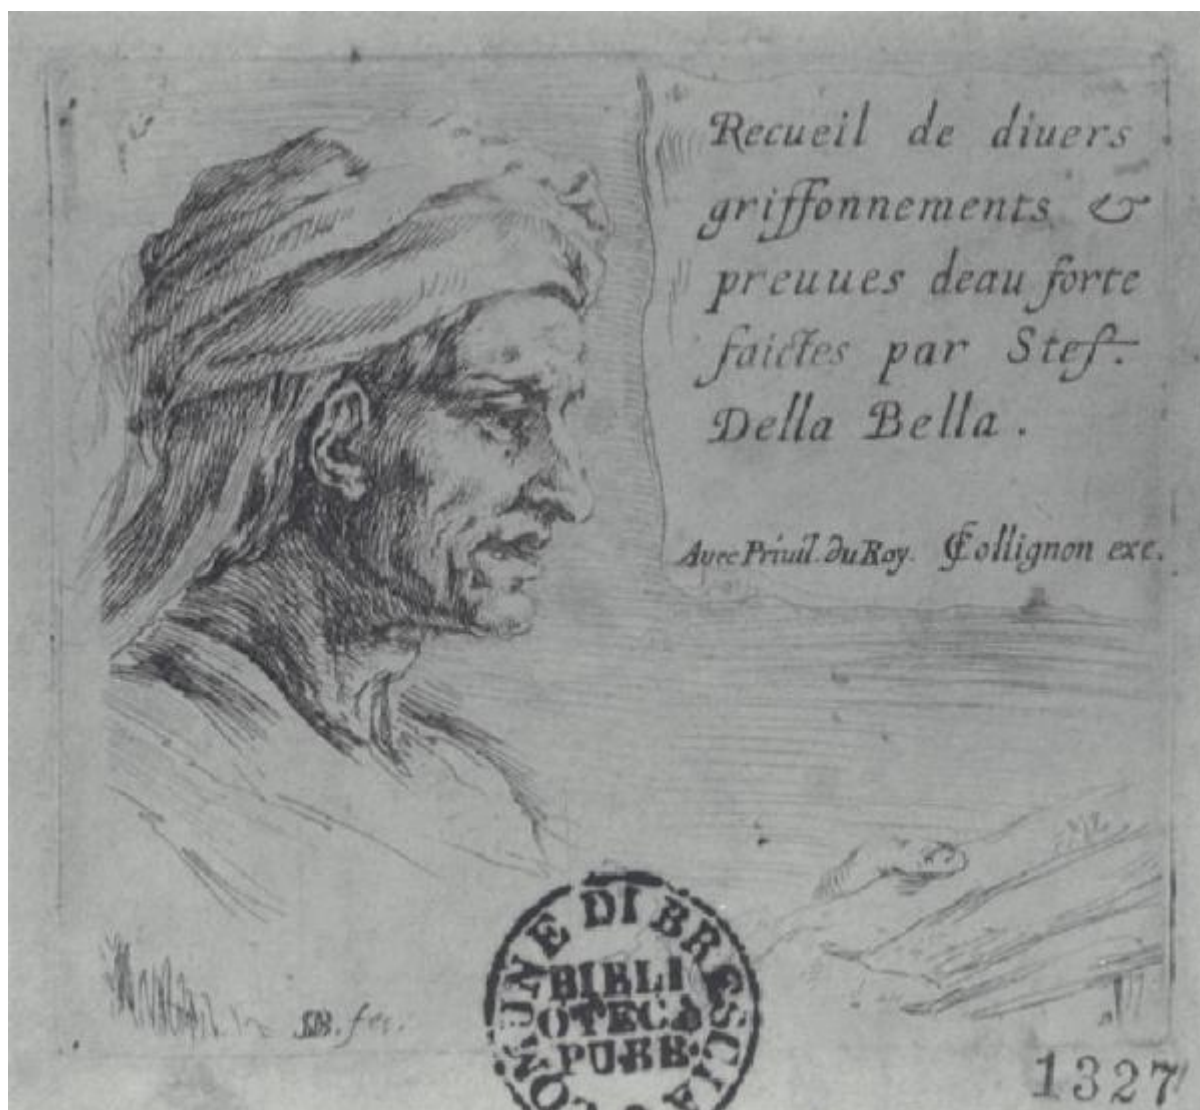 Recueil de diuers
griffonnements &
preuues deau forte
faictes par Stef.
Della Bella.
Avec Priuil. du Roy. Collignon exc.
SDB. fec.
COMUNE DI BRESCIA
BIBLI
OTECA
PUBB.
1327